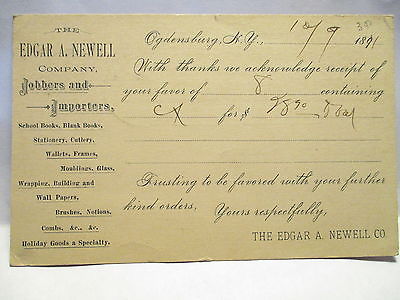 THE
EDGAR A. NEWELL
COMPANY,
Jobbers and
Importers,
School Books, Blank Books,
Stationery, Cutlery,
Wallets, Frames,
Mouldings, Glass,
Wrapping, Building and
Wall Papers,
Brushes, Notions,
Combs, &c., &c.
Holiday Goods a Specialty.
Ogdensburg, N.Y., 10/9 1891
With thanks we acknowledge receipt of
your favor of 8 containing
for $
Trusting to be favored with your further
kind orders,
Yours respectfully,
THE EDGAR A. NEWELL CO.